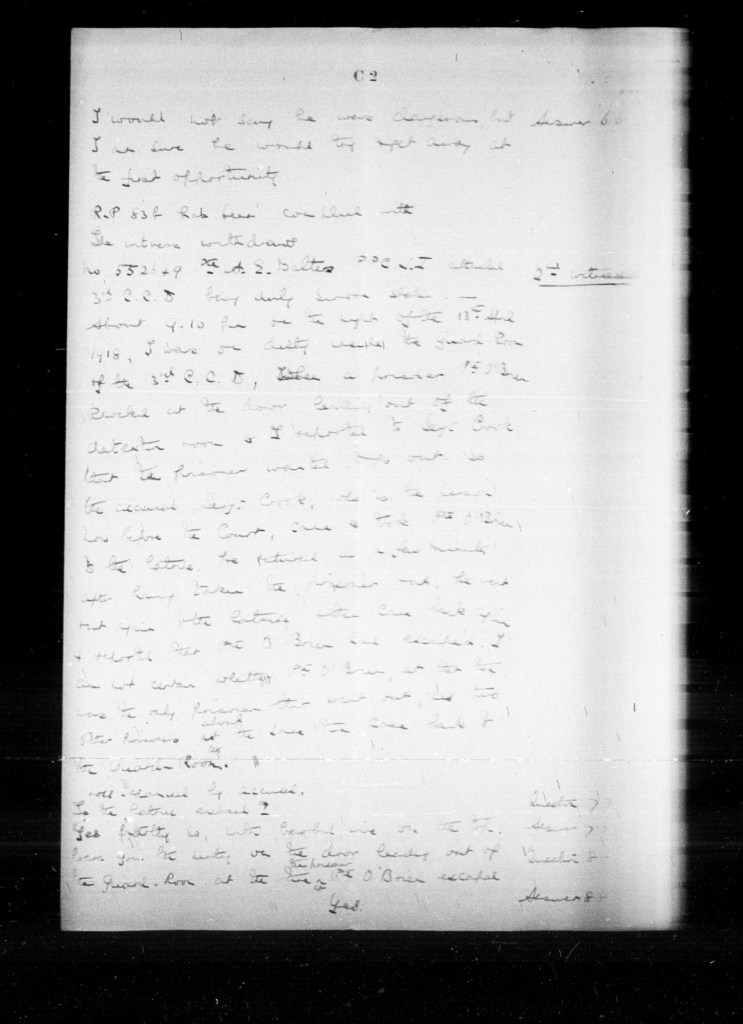 C 2
I would not say he was dangerous, but Answer 6
I am sure he would try & get away at
the first opportunity
R.P 83 F has been complied with
The witness withdrew
No 552649 Pte A. E. attached 2nd witness
3rd C.C.D being duly sworn states
About 9.10 pm on the night of the 13th April
1918, I was on duty inside the Guard Room
of the 3rd C.C.D, a prisoner Pte O'Brien
knocked at the door leading out of the
detention room & I reported to Sergt Cook
that the prisoner wanted to go out so
the accused Sergt Cook, who is the person
now before the Court, came & took Pte O'Brien
to the latrine. He returned in a few minutes
after having taken the prisoner out. He went
out again to the latrine then came back again
& reported that Pte O'Brien had escaped. I
am not certain whether Pte O'Brien, at that time
was the only prisoner that went out, two
other prisoners about the same time came back to
the Guard-Room.
Cross-examined by accused.
Is the latrine enclosed? Question 7
Yes partly so, with barbed wire on the top. Answer 7
Were you the sentry on the door leading out of Question 8
the Guard-Room at the time the prisoner Pte O'Brien escaped
Yes. Answer 8